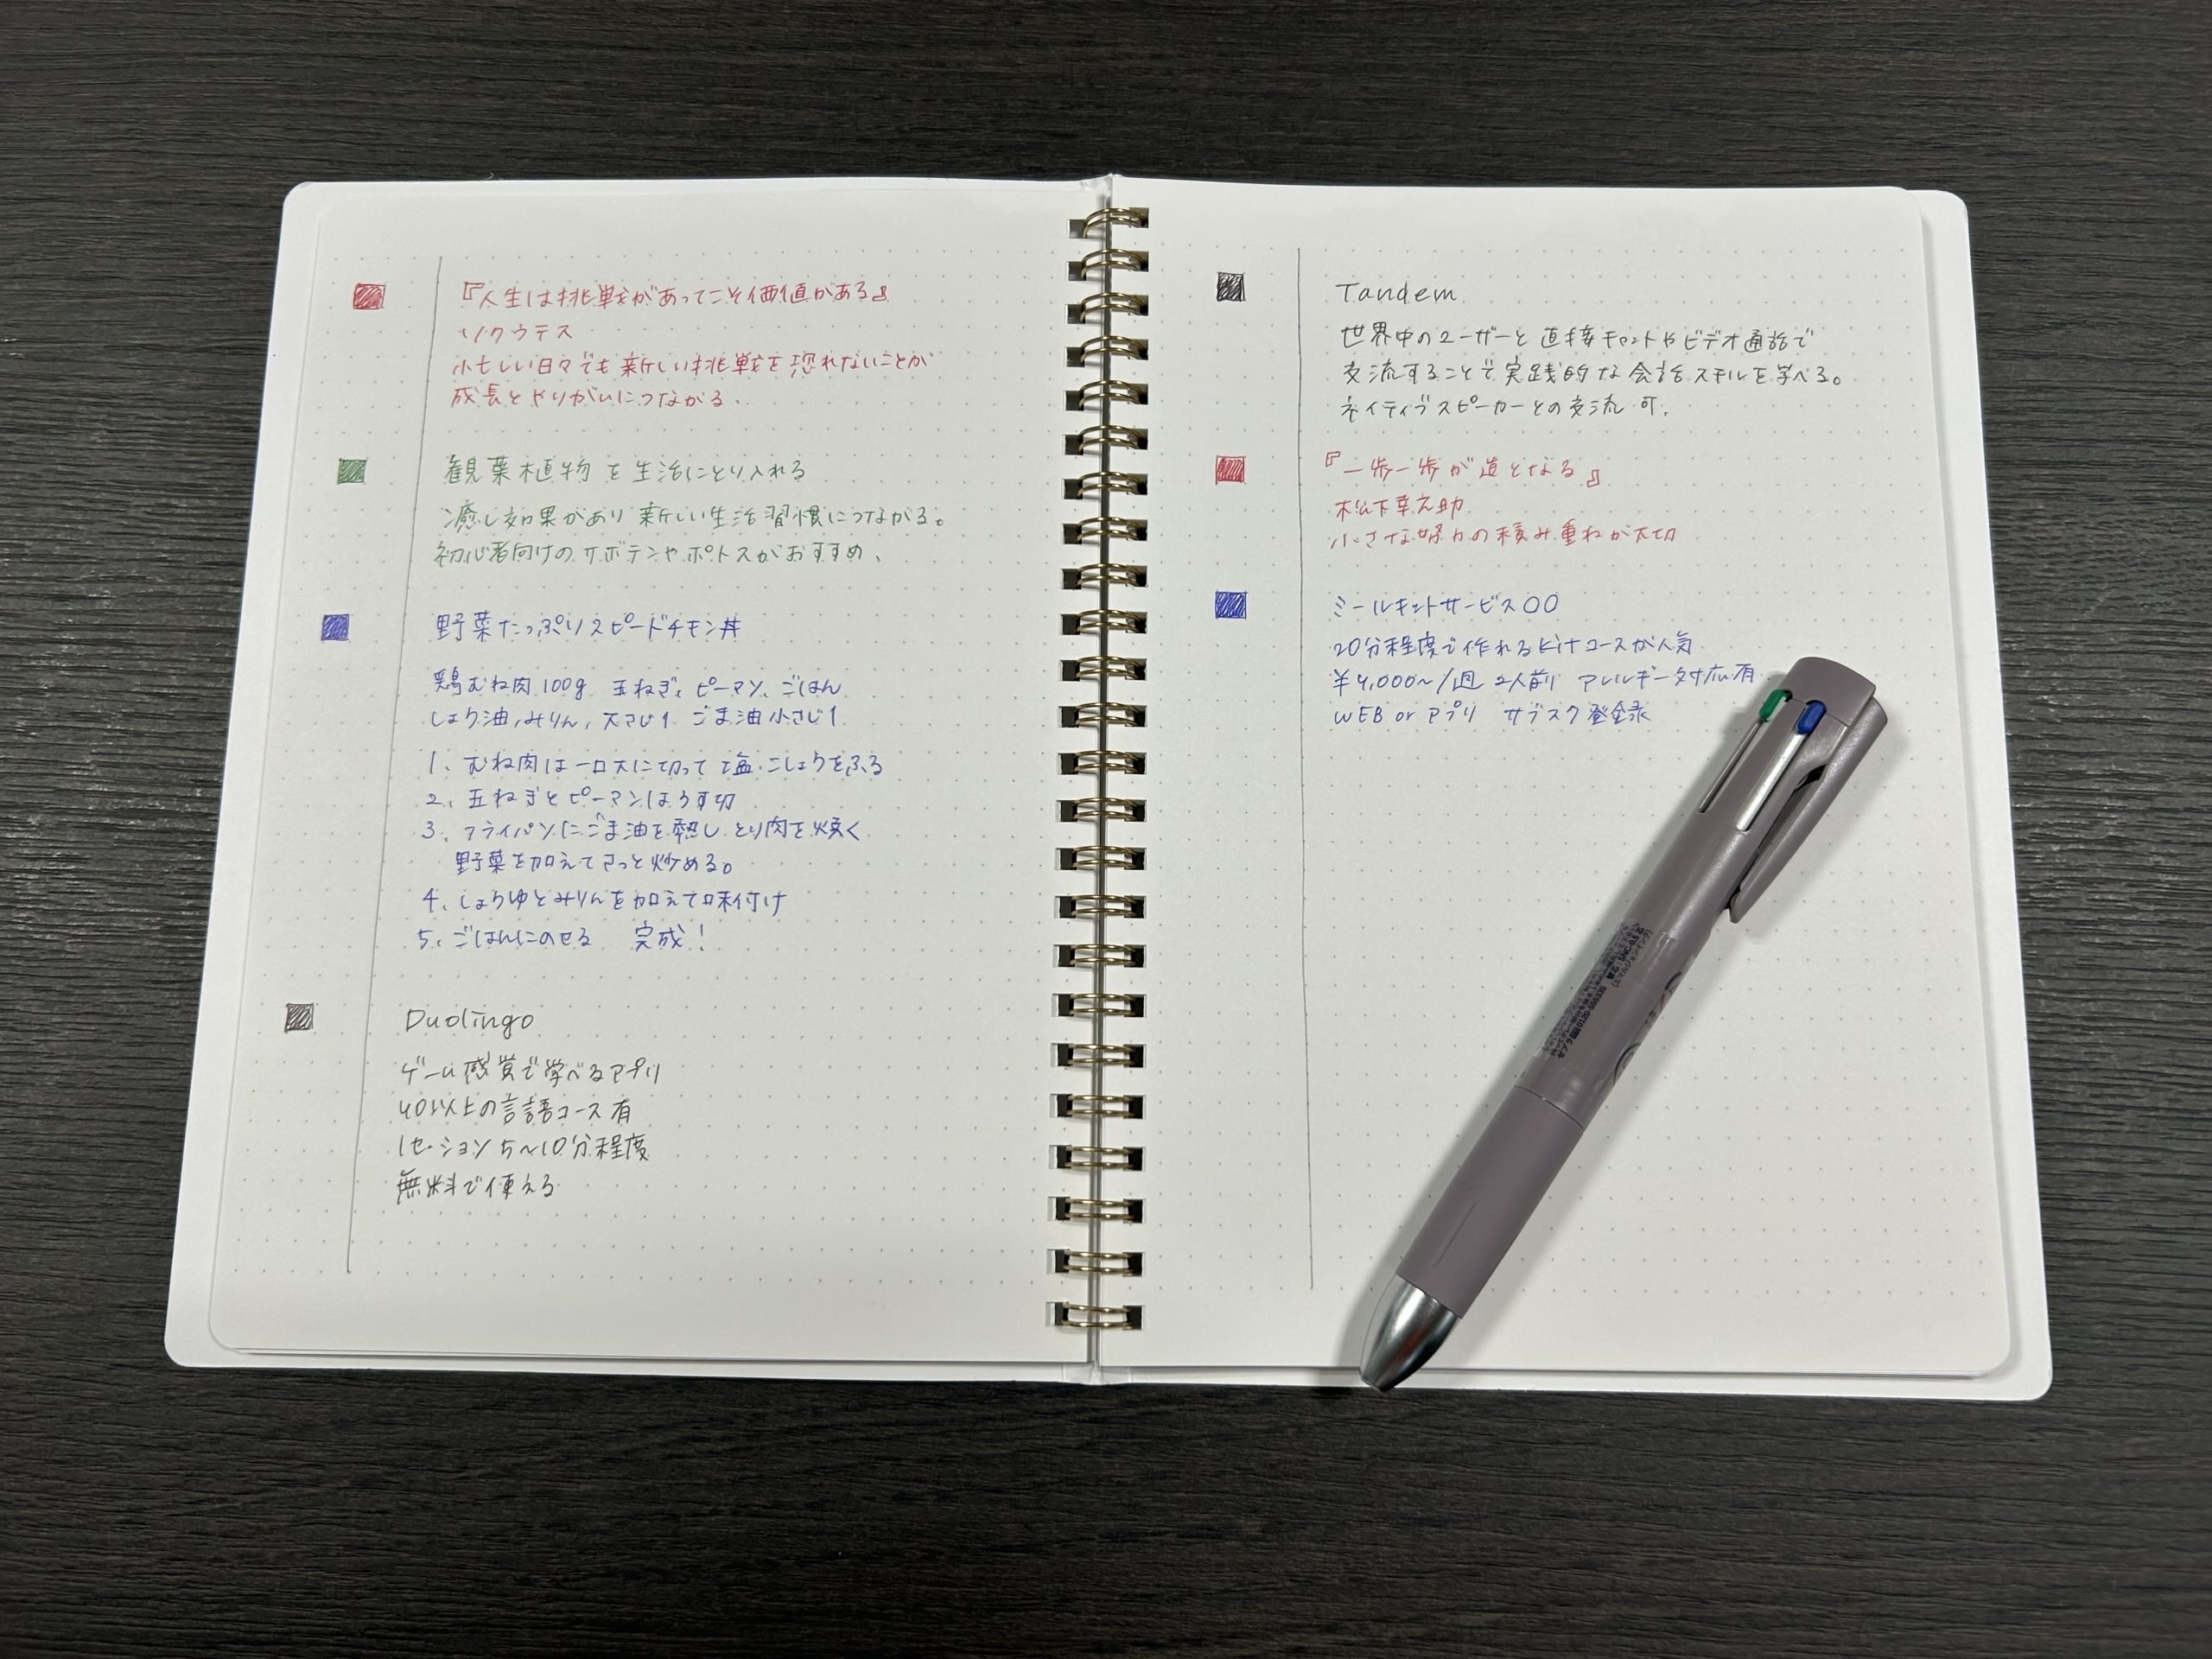 『人生は挑戦があってこそ価値がある』
ソクラテス
忙しい日々でも新しい挑戦を恐れないことが
成長とやりがいにつながる.
観葉植物を生活にとり入れる
癒し効果があり新しい生活習慣につながる。
初心者向けのサボテンやポトスがおすすめ.
野菜たっぷりスピードチキン丼
鶏むね肉100g 玉ねぎ、ピーマン、ごはん
しょう油,みりん,大さじ1 ごま油小さじ1
1、むね肉は一口大に切って塩・こしょうをふる
2、玉ねぎとピーマンはうす切
3、フライパンにごま油を熱しとり肉を焼く
野菜を加えてさっと炒める。
4、しょうゆとみりんを加えて味付け
5、ごはんにのせる 完成！
Duolingo
ゲーム感覚で学べるアプリ
40以上の言語コース有
1セッション5〜10分程度
無料で使える
Tandem
世界中のユーザーと直接チャットやビデオ通話で
交流することで実践的な会話スキルを学べる。
ネイティブスピーカーとの交流 可.
『一歩一歩が道となる』
松下幸之助
小さな努力の積み重ねが大切
ミールキットサービス〇〇
20分程度で作れるKitコースが人気
¥4,000〜/週 2人前 アレルギー対応有
WEB or アプリ サブスク登録